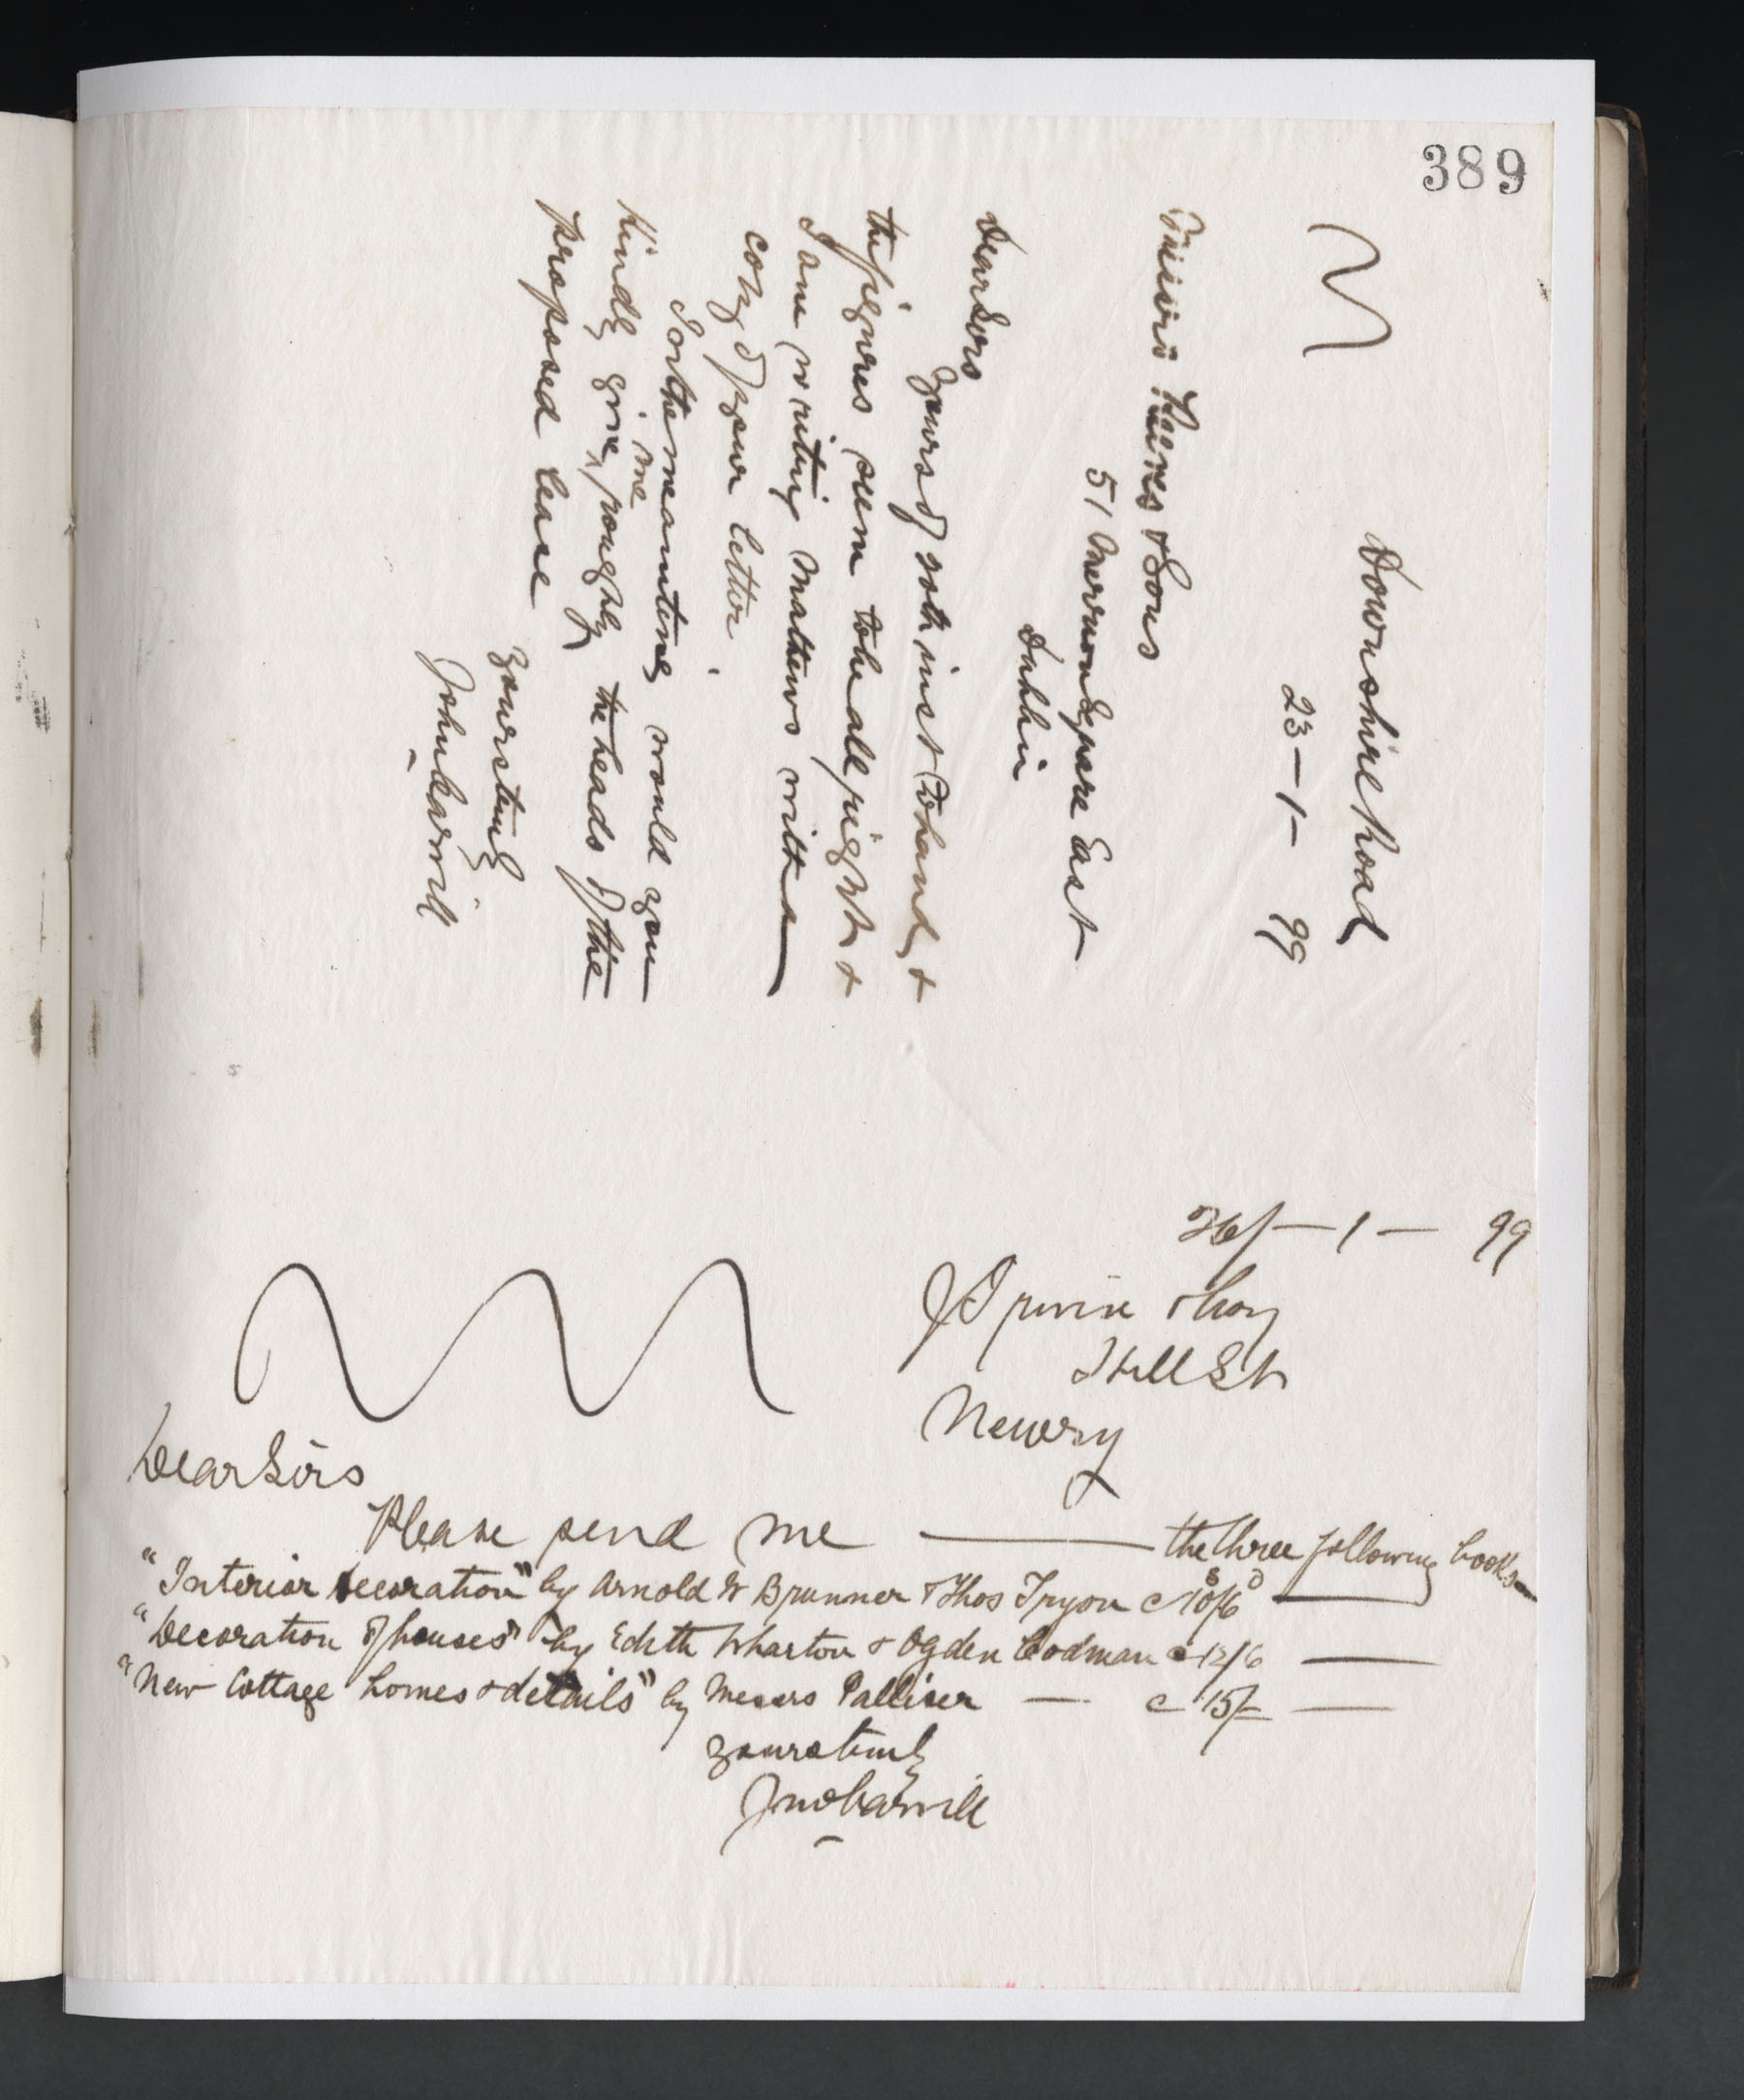 389
Downshire Road
23-1-99
Messrs & Sons
51 Merrion Square East
Dublin
Dear Sirs
Yours of inst to hand, &
the figures seem to be all right &
I am writing Mathews with a
copy of your letter.
In the meantime would you
me
kindly give ^ roughly the heads of the
proposed lease
Yours truly
John Carvill
26/-1-99
J Irwin & Coy
Hill St
Newry
Dear Sirs
Please send me — the three following books
"Interior Decoration" by Arnold W Brunner & Thos Tryon c 10s/6d —
"Decoration of houses" by Edith Wharton & Ogden Codman c 12/6 —
"New Cottage homes & details" by Messrs Palliser — c 15/- —
yours truly
Jno Carvill